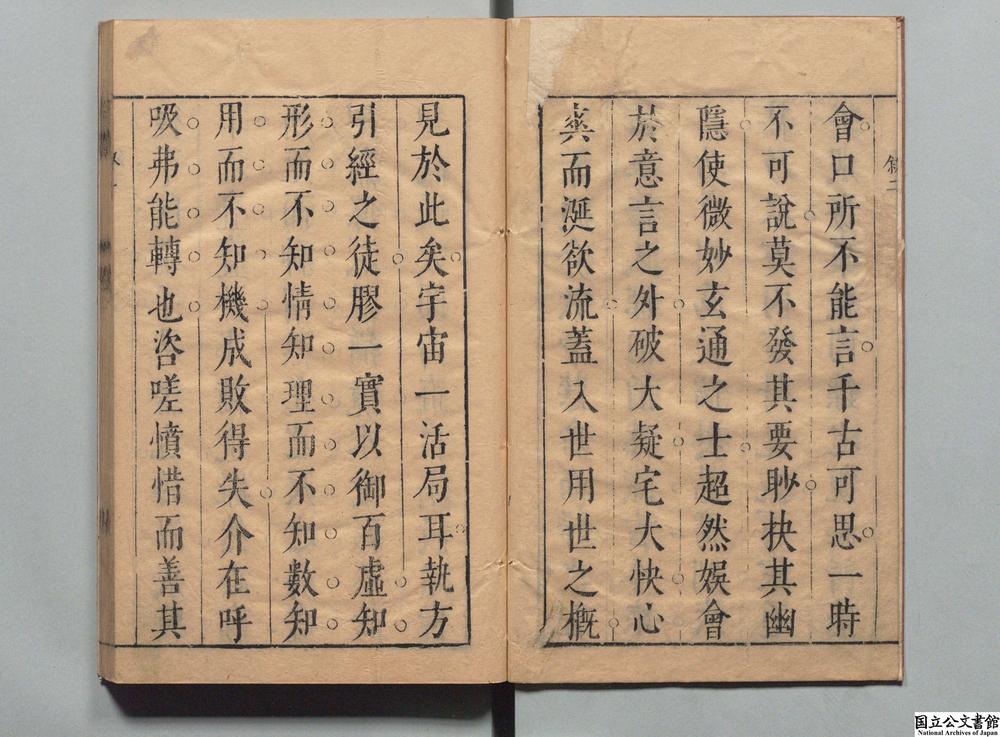 敘二
會口所不能言千古可思一時
不可說莫不發其要眇抉其幽
隱使微妙玄通之士超然娛會
於意言之外破大疑宅大快心
爽而涎欲流蓋入世用世之概
見於此矣宇宙一活局耳執方
引經之徒膠一實以御百虛知
形而不知情知理而不知數知
用而不知機成敗得失介在呼
吸弗能轉也咨嗟憤惜而善其
国立公文書館
National Archives of Japan